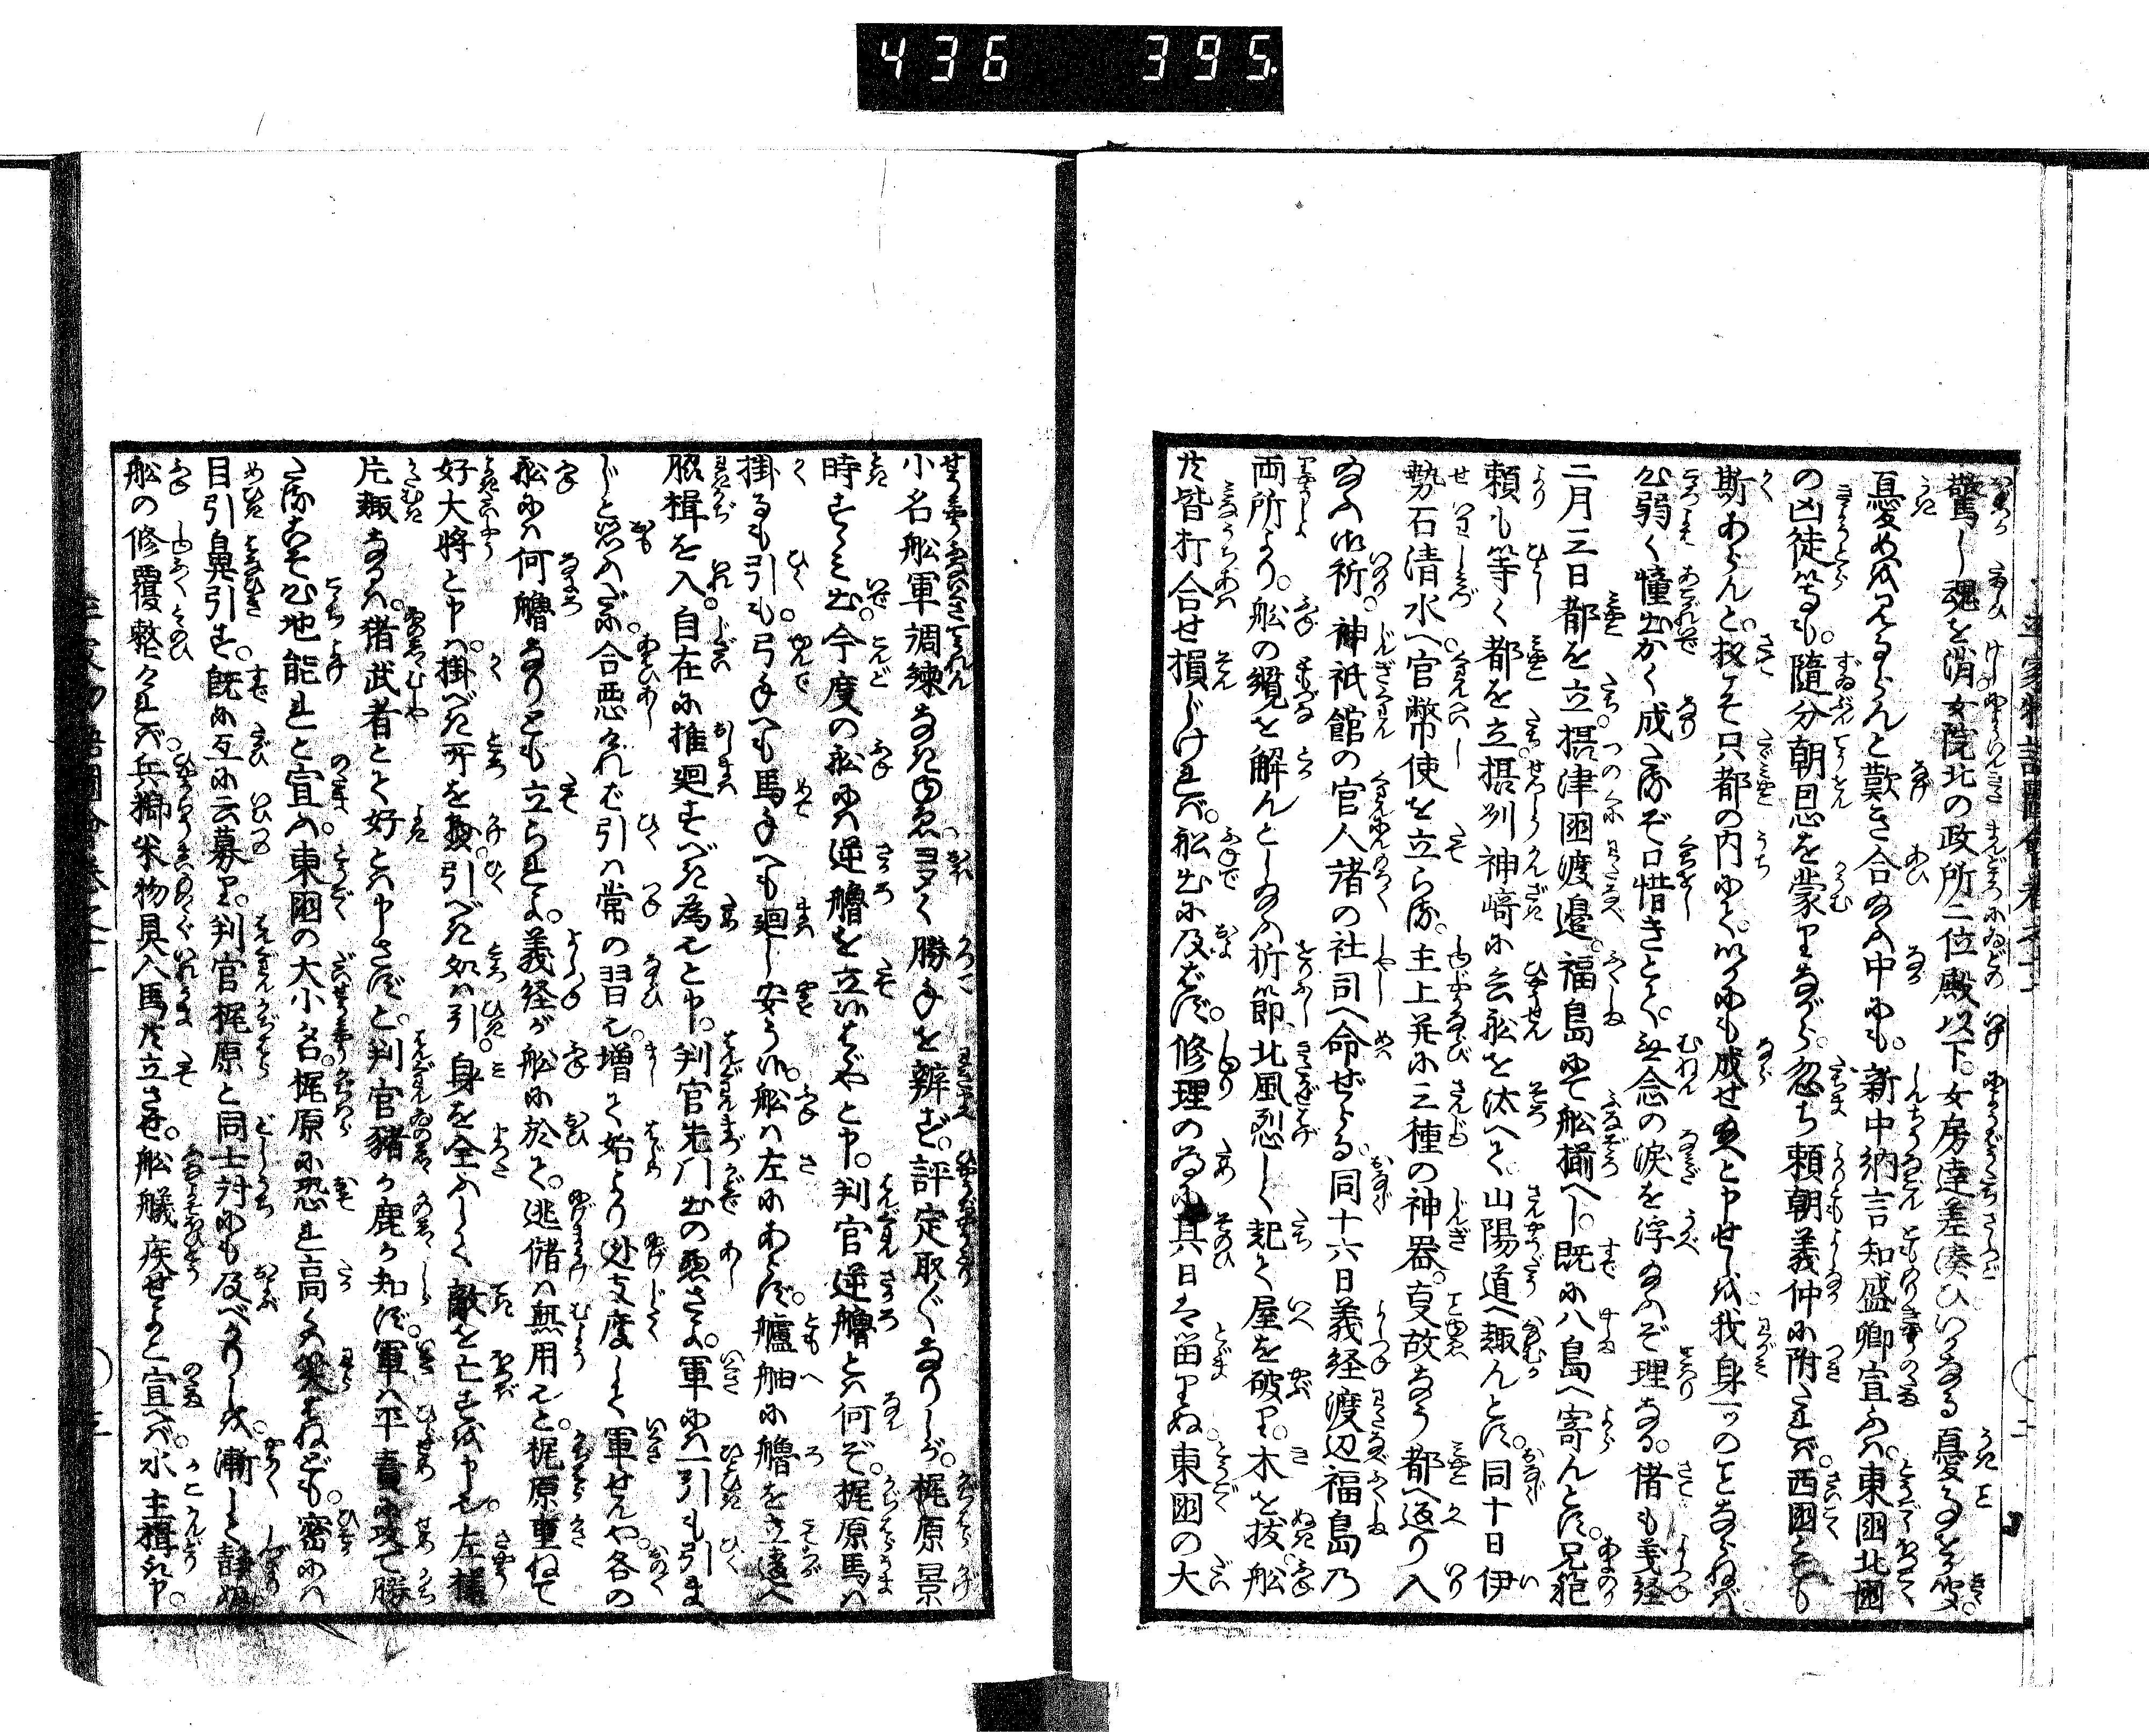 436 395.
驚し魂を消女院北の政所二位殿以下。女房達差湊ひいかなる憂事をか聞。
憂めを見るらんと歎き合給ふ中にも。新中納言知盛卿宣ふは。東国北国
の凶徒等も。随分朝恩を蒙りながら。忽ち頼朝義仲に附たれば。西国とても
斯あらんと。扨こそ只都の内にて。いかにも成せ給へと申せしを。我身一ツのことならねば。
心弱く憧出かく成たるぞ口惜きとて。無念の涙を浮給ふぞ理なる。偖も義経
二月三日都を立。摂津国渡辺。福島にて船揃へし。既に八島へ寄んとす。兄範
頼も等く都を立。摂州神崎に兵船を汰へて。山陽道へ趣んとす。同十日伊
勢石清水へ官幣使を立らる。主上并に三種の神器。事故なう都へ返り入
給ふ御祈。神祇館の官人諸の社司へ命ぜらる。同十六日義経渡辺福島乃
両所より。船の纜を解んとし給ふ折節。北風烈しく起て屋を破り。木を抜。船
共皆打合せ損じければ。船出に及ばず。修理の為に其日は留りぬ。東国の大
小名船軍調練なきゆゑ。ヨク〳〵勝手を辨ず。評定取〴〵なりしが。梶原景
時すゝみ出。今度の船には逆艪を立候はゞやと申。判官逆艪とは何ぞ。梶原馬は
掛るも引も。弓手へも馬手へも廻し安う候。船は左にあらず。艫舳に艪を立違へ
脇楫を入。自在に推廻すべき為也と申。判官先門出の悪さよ。軍には一引も引ま
じと思ふだに。合悪ければ引は常の習也。増て始より逃支度して軍せんや。各の
船には何艪なりとも立られよ。義経が船に於て。逃儲は無用也と。梶原重ねて
好大将と申は。掛べき所を掛。引べき処は引。身を全ふして敵を亡すを申也。左様
片趣なるは。猪武者とて好とは申さずと。判官猪か鹿か知ず。軍は平責に攻て勝
たるこそ心地能れと宣ふ。東国の大小名。梶原に恐れ高くは笑はねども。密には
目引鼻引す。既に互に云募り。判官梶原と同士討にも及べかりしを。漸〳〵と静ぬ。
船の修覆整ければ。兵粮米物具入馬共立させ。船艤疾せよと宣へば。水主楫取申。